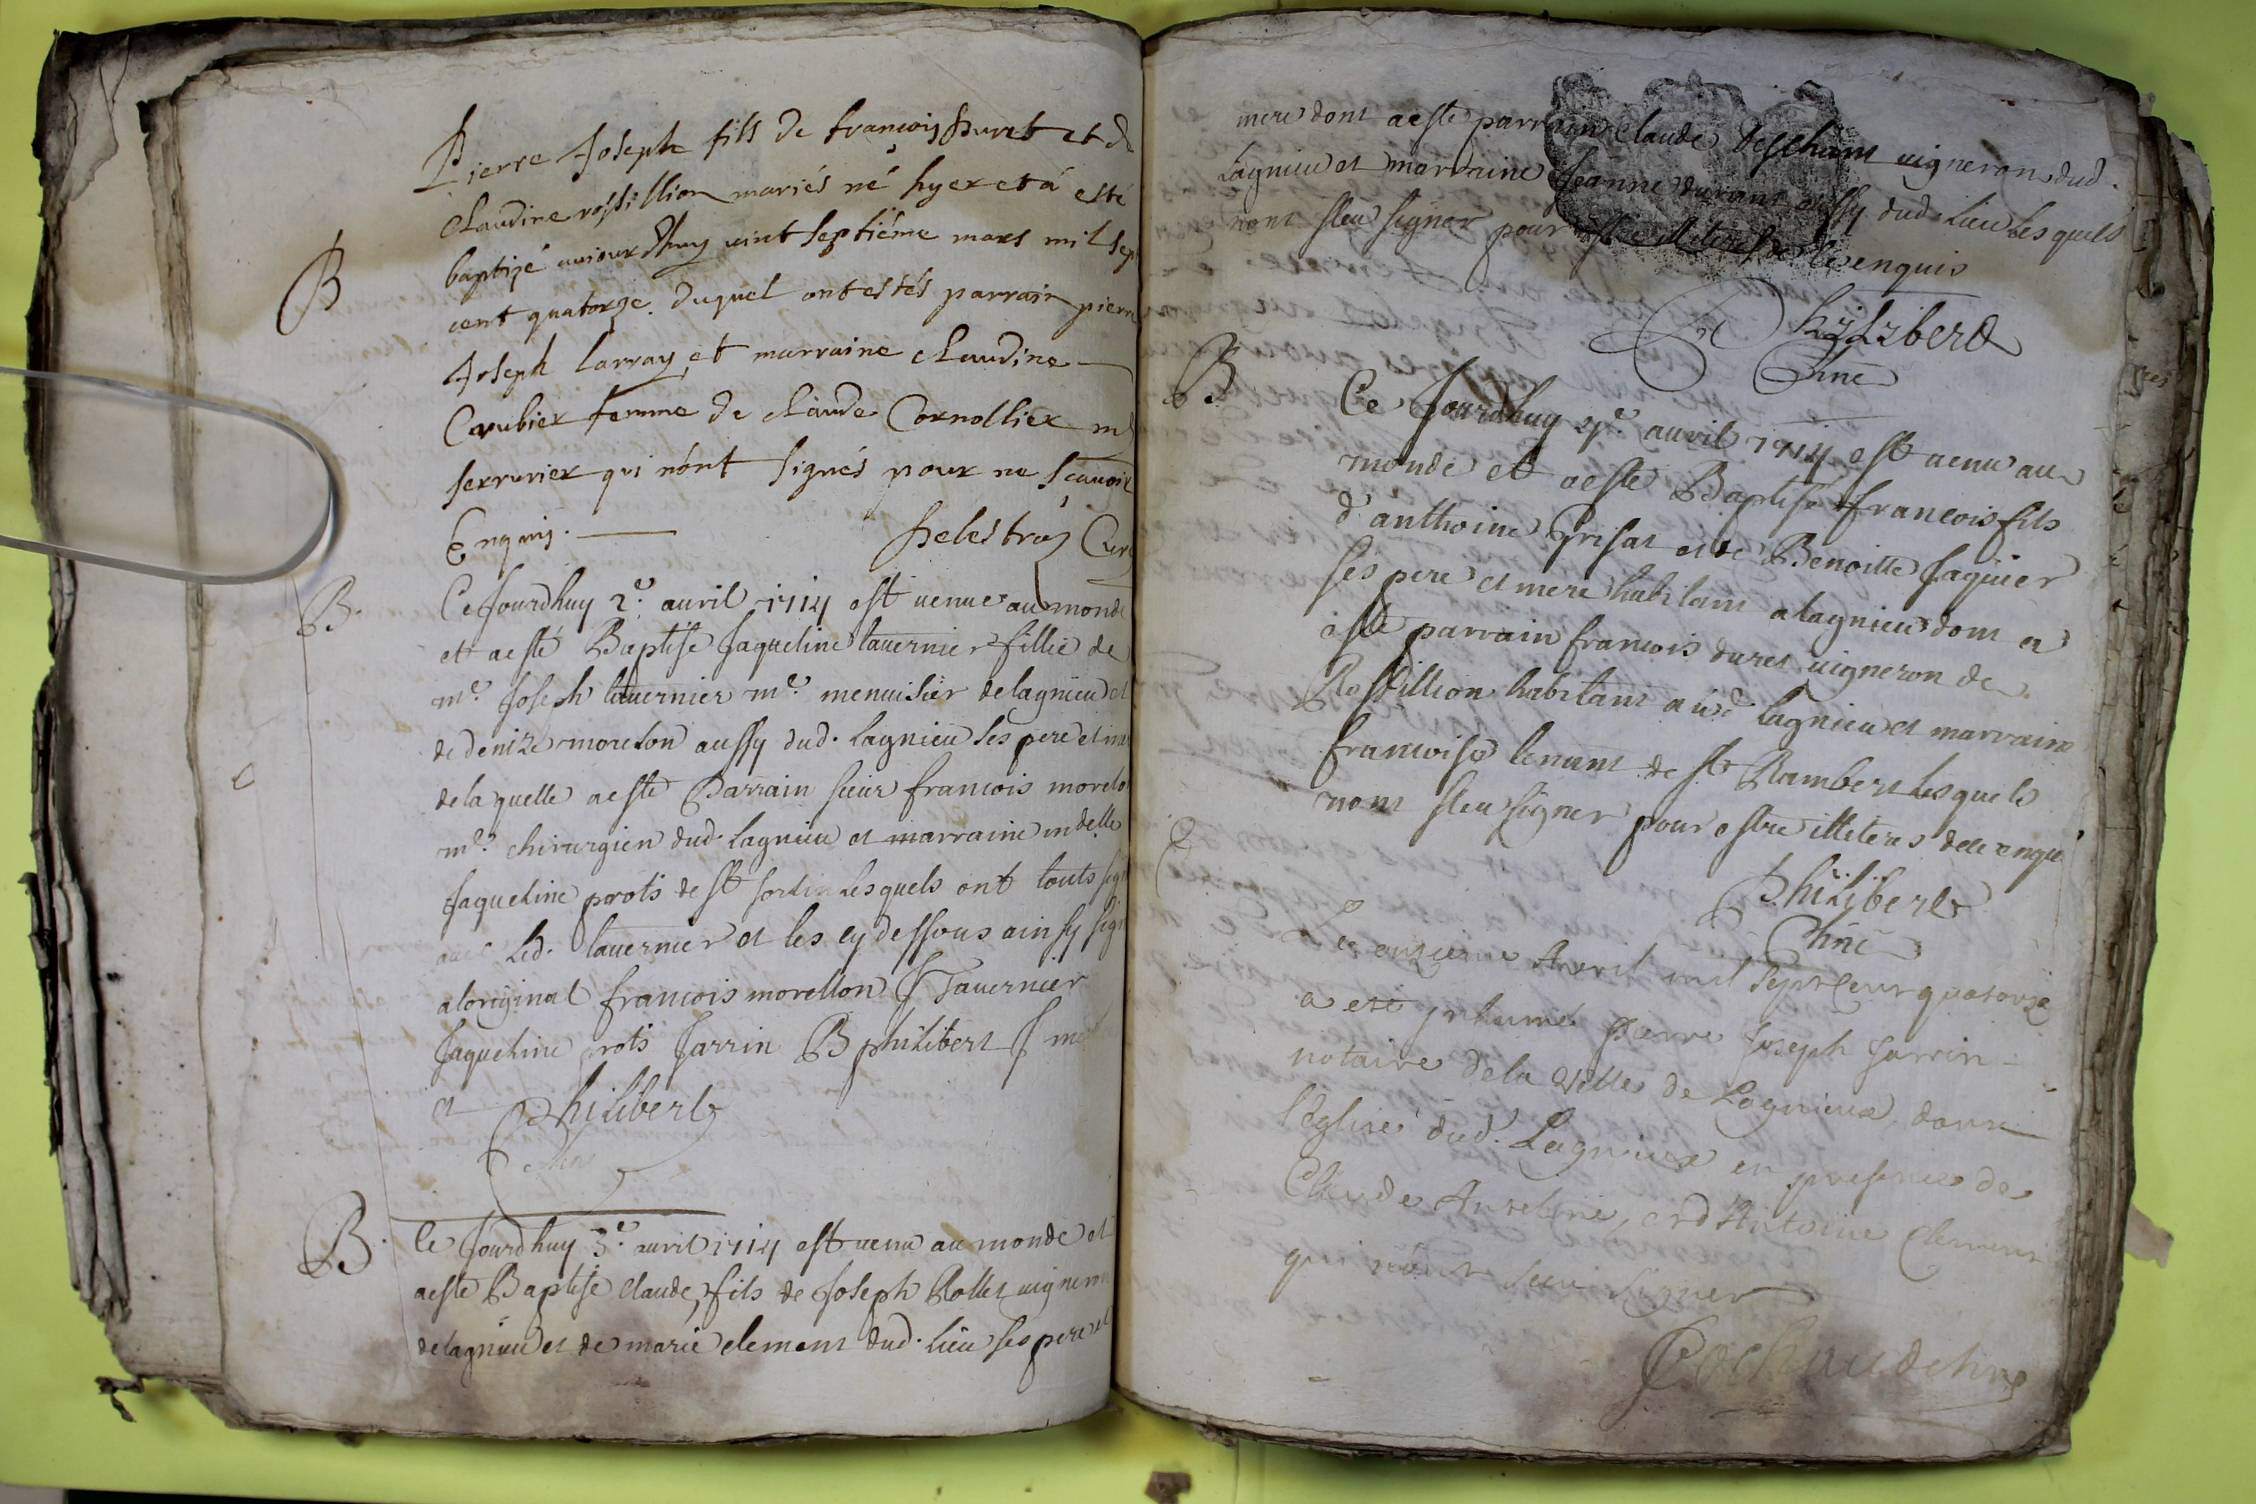 Pierre Joseph fils de françois Duret et de
Claudine rossillion mariés né hyer et à esté
B
baptizé auiourdhuy vint septiéme mars mil sep
cent quatorze. duquel ont estés parrain pierre
Joseph Larray, et marraine claudine
femme de claude Cornollier
serrurier qui n'ont signés pour ne scauoir
Enquis. Delestraz Curé
B.
Ce Jourdhuy 2e. auril 1714 est uenue au monde
et aesté Baptise Jaqueline tauernier fillie de
me. Joseph tauernier me. menuisier de lagnieu et
de denize morelon aussy dud. lagnieu ses pere et
de la quelle aesté Parrain sieur francois morelo
me. chirurgien dud. lagnieu et marraine
Jaqueline prots de St sorlin lesquels ont touts
auec led. tauernier et les cy dessous ainsy
a loriginal francois morellon J Tauernier
Jaqueline prots Jarrin B philibert J
et Philibert
B.
Ce Jourdhuy 3e. auril 1714 est uenu au monde et
aesté Baptise claude, fils de Joseph Rollet uigneron
de lagnieu et de marie clement dud. lieu ses pere et
mere dont aesté parrain claude deschamt uigneron dud.
Lagnieu et marraine Jeanne durant aussy dud. lieu lesquels
nont sceu signer pour estre illiterés de ce enquis
Philibert
B.
Ce Jourdhuy auril 1714 est uenu au
monde et aesté Baptisé francois fils
d'anthoine Grisat et de Benoitte Jaquier
ses pere et mere habitant a lagnieu dont a
esté parrain francois duret uigneron de
Rossillion habitant lagnieu et marraine
francoise de St Rambert lesquels
nont sceu signer pour estre illiterés de ce enqui
Philibert
Le onzieme Avril mil sept cent quatorze
a esté inhumé pierre Joseph Jarrin
notaire de la ville de Lagnieux, dans
l'église dud. Lagnieux en presence de
Claude Anselme, et d'Antoine Clement
qui n'ont sceu signer